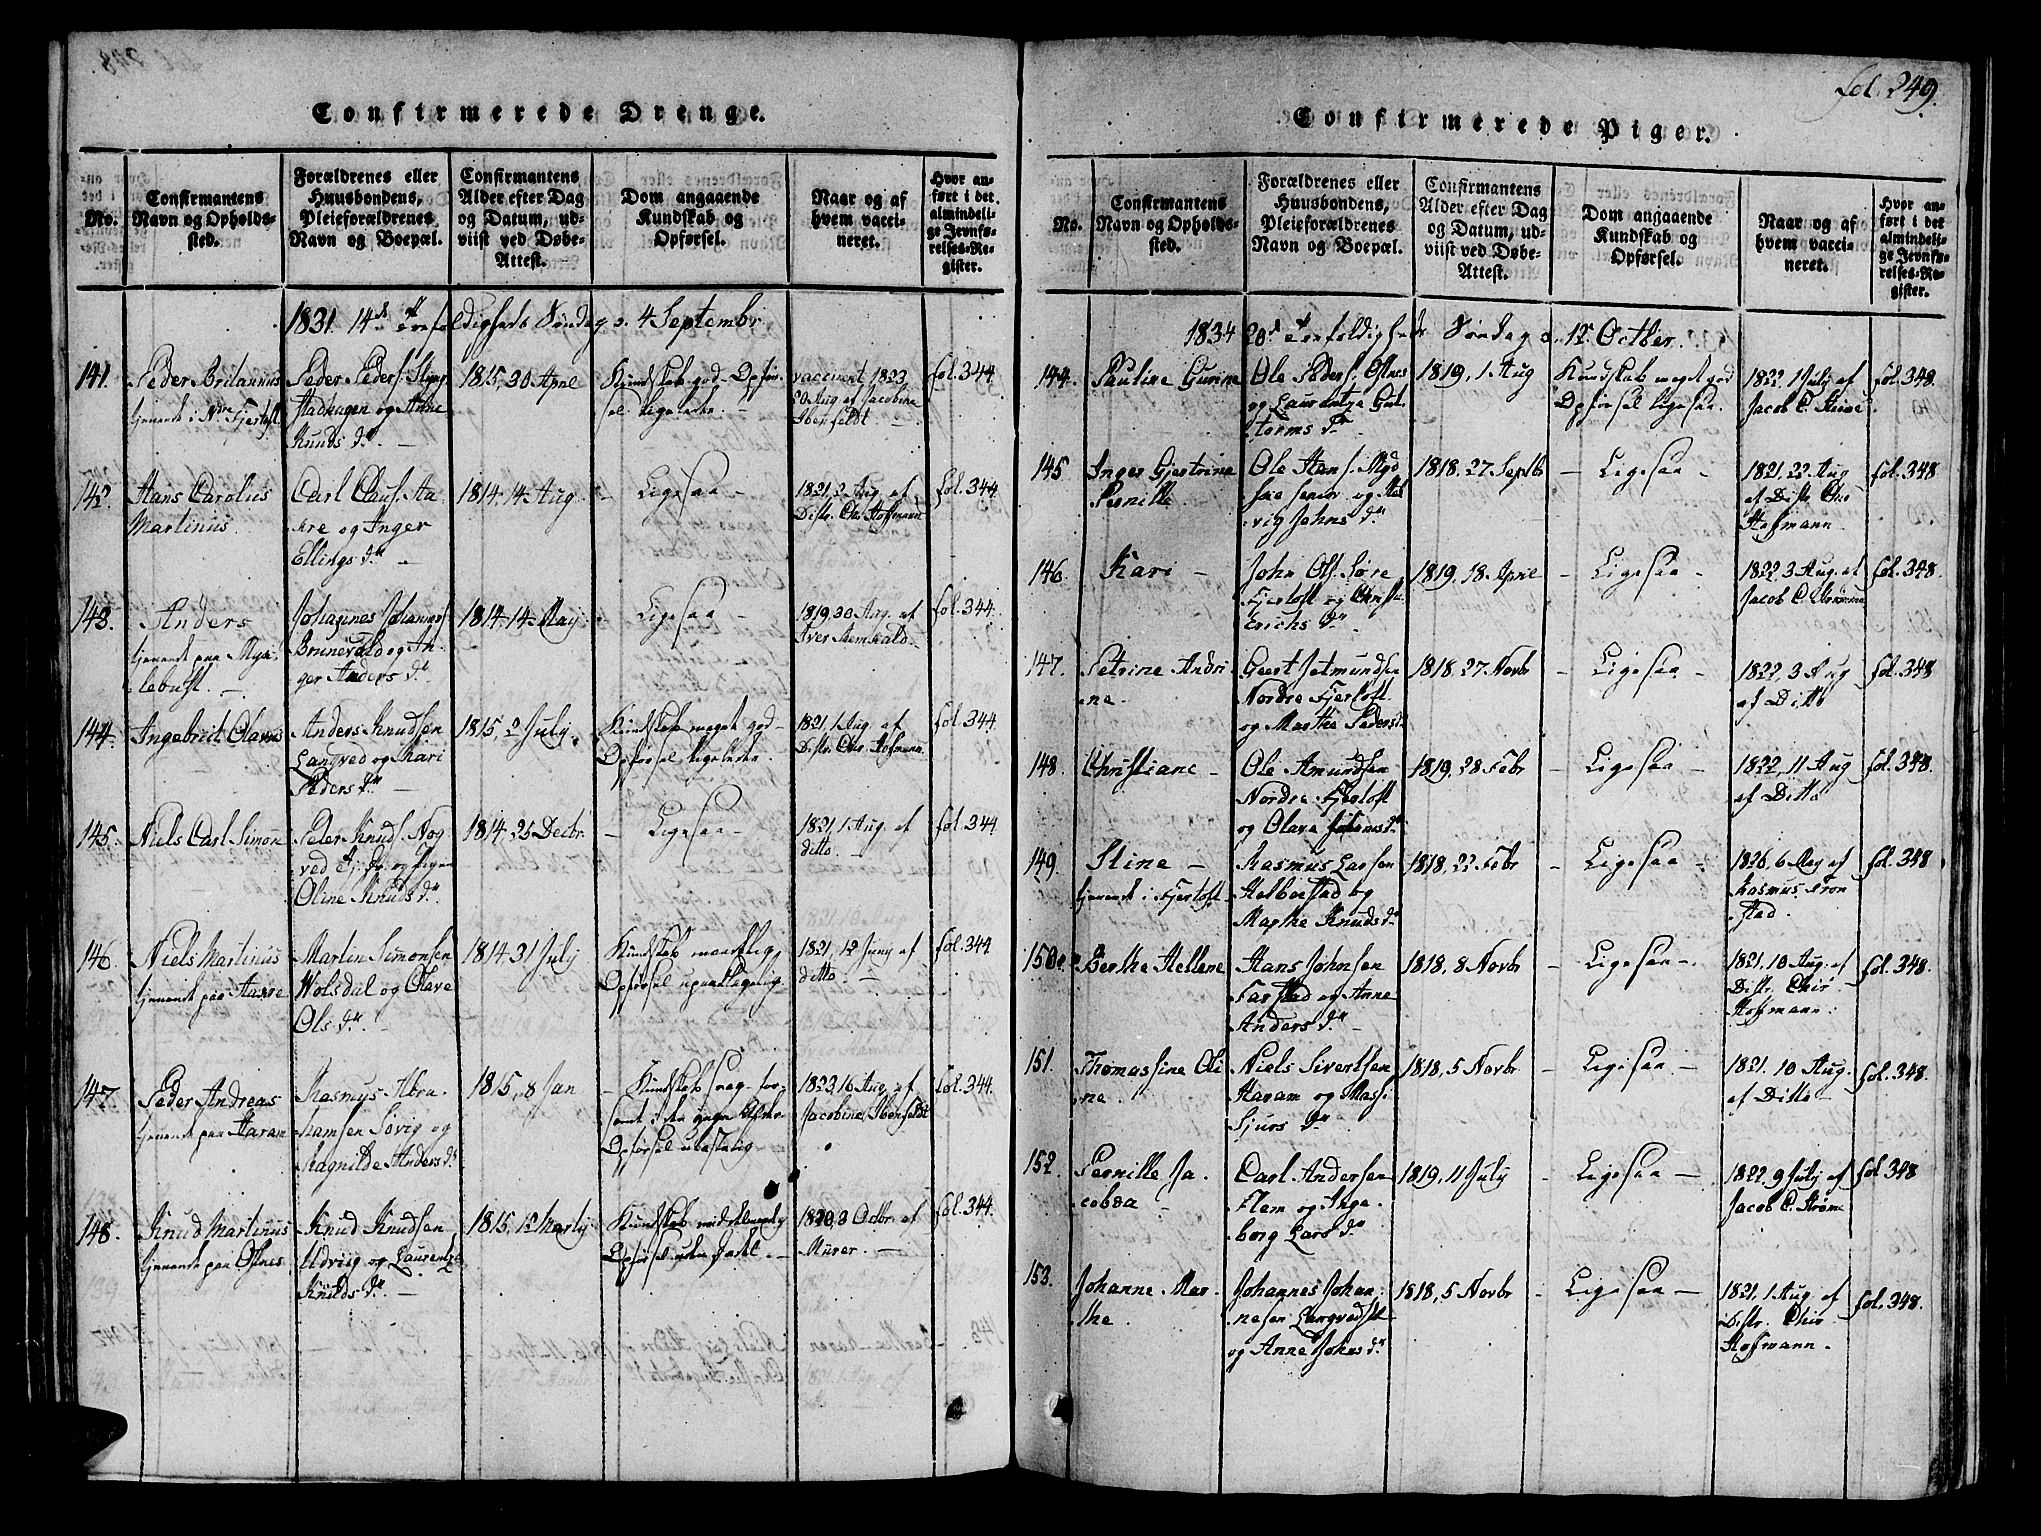 Confirmerede Drenge.
No.
Confirmantens
Navn og Opholds-
sted.
Forældrenes eller
Huusbondens,
Pleieforældrenes
Navn og Boepæl.
Confirmantens
Alder efter Dag
og Datum, ud-
viist ved Døbe-
Attest.
Dom angaaende
Kundskab og
Opførsel.
Naar og af
hvem vacci-
neret.
Hvor an-
ført i det
almindeli-
ge Jevnfø-
relses-Re-
gister.
1831. 14de Søndag d. 4 Septembr
141.
Peder
tjenende i Fjertoft.
Peder Peders.
og Anne
Knuds dr. -
1815, 30 April
Kundskab god - Opfør-
sel ligeledes. -
vaccinert 1823,
20 Aug af Jacobine
Ibenfeldt. -
fol. 344
142.
Hans Carolus
Martinus
Carl Claus.
og Inger
Ellings dr. -
1814, 14 Aug.
- Ligesaa -
1821, 2 Aug. af
Distr. Chir. Hoffmann
fol. 344
143.
Anders
tjenende paa
lebust. -
Johannes Johannes
Brunevold og In-
ger Anders dr.
1814, 14 May
Ligesaa -
1819, 30 Aug. af
Iver
fol. 344.
144.
Ingebrit Olaus
Anders Knudsen
Langved og Kari
Peders dr. -
1815, 2 July.
Kundskab meget god -
Opførsel ligeledes.
1821, 1 Aug. af
Distr. Chir. Hofmann.
fol. 344.
145.
Niels Carl Simon
Peter Knuds.
Oline Knuds dr.
1814, 25 Decbr.
- Ligesaa -
1821, 1 Aug. af
ditto. -
fol. 344
146.
Niels Martinus
tjenende paa
Martin Simonsen
Wolsdal og Olave
Ols dr. -
1814, 31 July
Kundskab maadelig,
Opførsel upaaklagelig.
1821, 12 Juny af
ditto. -
fol. 344
147.
Peder Andreas
tjenende paa Haram
Rasmus Abra-
hamsen Søvig og
Ragnilde Anders dr.
1815, 8 Jan
- Kundskab svag
Opførsel ustadig
1823, 16 Aug. af
Jacobine Ibenfeldt
fol. 344.
148.
Knud Martinus
tjenende paa Ostnes.
Knud Knudsen
Ulvig og Laurentze
Knuds dr. -
1815, 12 Martij
Kundskab middelmaadig
Opførsel uden Dadel. -
1820, 3 Octbr. af
Mürer. -
fol. 344.
fol. 249.
Confirmerede Piger.
No.
Confirmantens
Navn og Opholds-
sted.
Forældrenes eller
Huusbondens,
Pleieforældrenes
Navn og Boepæl.
Confirmantens
Alder efter Dag
og Datum, ud-
viist ved Døbe-
Attest.
Dom angaaende
Kundskab og
Opførsel.
Naar og af
hvem vacci-
neret.
Hvor an-
ført i det
almindeli-
ge Jevnfø-
relses-Re-
gister.
1834 20de Søndag d. 12. Octber.
144.
Pauline Gurine
Ole Peders. Ostnes
og Laurentze Gut-
torms dr.
1819, 1 Aug
Kundskab meget god
Opførsel ligesaa.
1822, 1 July af
Jacob C. Strøm.
fol. 348.
145
Inger Gjertrine
Pernille.
Ole Hans s.
senior og
vig Johns dr.
1818, 27. Septbr
- Ligesaa -
1821, 22 Aug
af Distr. Chir
Hofmann.
fol. 348.
146.
Kari -
John Ols. Søre
Fjertoft og
Erichs dr.
1819, 18 April
- Ligesaa -
1822, 3 Aug. af
Jacob C.
fol. 348.
147.
Petrine Andri
ne.
Geert Jetmundsen
Nordre Fjertoft
og Marthe Pedersdr
1818, 27 Novbr
- Ligesaa -
1822, 3 Aug
af Ditto
fol. 348
148.
Christiane -
Ole Amundsen
Nordre Fjertoft
og Olave dr.
1819, 28 Febr
- Ligesaa -
1822, 11 Aug
af Ditto
fol. 348.
149.
Stine -
tjenende i Fjertoft.
Rasmus Larsen
Helbostad og
Marthe Knuds dr
1818, 22 Febr
- Ligesaa -
1826, 6 May af
Rasmus Fron
stad.
fol. 348
150.
Berthe Hellene
Hans Johnsen
Farstad og Anne
Anders dr. -
1818, 8 Novbr
- Ligesaa -
1821, 10 Aug. af
Distr. Chir -
Hoffmann.
fol. 348.
151.
Thomassine Oli
ne.
Niels Sivertsen
Haram og
Sjurs dr
1818, 5 Novbr
- Ligesaa -
1821. 10 Aug.
af Ditto -
fol. 348.
152.
Pernille Ja
cobea -
Carl Andersen
Flem og Inge-
borg Lars dr
1819, 11 July
- Ligesaa -
1822, 9 July af
Jacob C. Strøm
fol. 348
153.
Johanne Mar-
the.
Johannes Johan
nesen Langved
og Anne Johns dr.
1818, 5 Novbr
- Ligesaa -
1821, 1 Aug. af
Distr. Chir
Hofmann.
fol. 348.